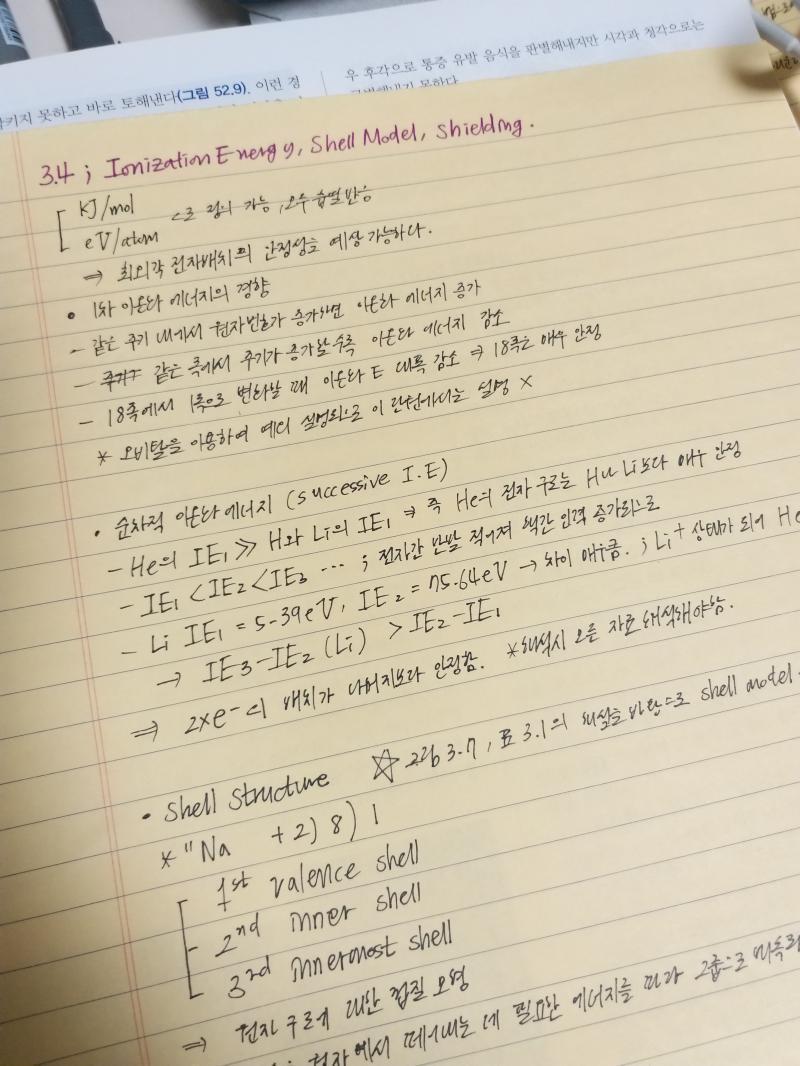 키지 못하고 바로 토해낸다(그림 52.9). 이런 경
우 후각으로 통증 유발 음식을 판별해내지만 시각과 청각으로는
3.4 ; Ionization Energy, Shell Model, Shielding.
KJ/mol
eV/atom 으로 정의 가능, 모두 흡열반응
⇒ 최외각 전자배치의 안정성을 예상 가능하다.
• 1차 이온화 에너지의 경향
- 같은 주기 내에서 원자번호가 증가하면 이온화 에너지 증가
- 같은 족에서 주기가 증가할수록 이온화 에너지 감소
- 18족에서 1족으로 변화할 때 이온화 E 대폭 감소 ⇒ 18족은 매우 안정
* 오비탈을 이용하여 예외 설명되므로 이 단원에서는 설명 X
• 순차적 이온화 에너지 (successive I.E)
- He의 IE₁ ≫ H와 Li의 IE₁ ⇒ 즉 He의 전자 구조는 H나 Li보다 매우 안정
- IE₁ < IE₂ < IE₃ ··· ; 전자간 반발 적어져 핵간 인력 증가되므로
- Li IE₁ = 5.39eV, IE₂ = 75.64eV → 차이 매우큼. ; Li⁺ 상태가 되어 He
→ IE₃-IE₂ (Li) > IE₂-IE₁
⇒ 2×e⁻의 배치가 나머지보다 안정함. *해석시 모든 자료 해석해야함.
• Shell Structure ☆ 그림 3.7, 표 3.1의 해설을 바탕으로 shell model
* ¹¹Na +2) 8) 1
1st valence shell
2nd inner shell
3rd innermost shell
⇒ 전자 구조에 대한 껍질 모형
전자에서 떼어내는 데 필요한 에너지를 따라 그룹으로